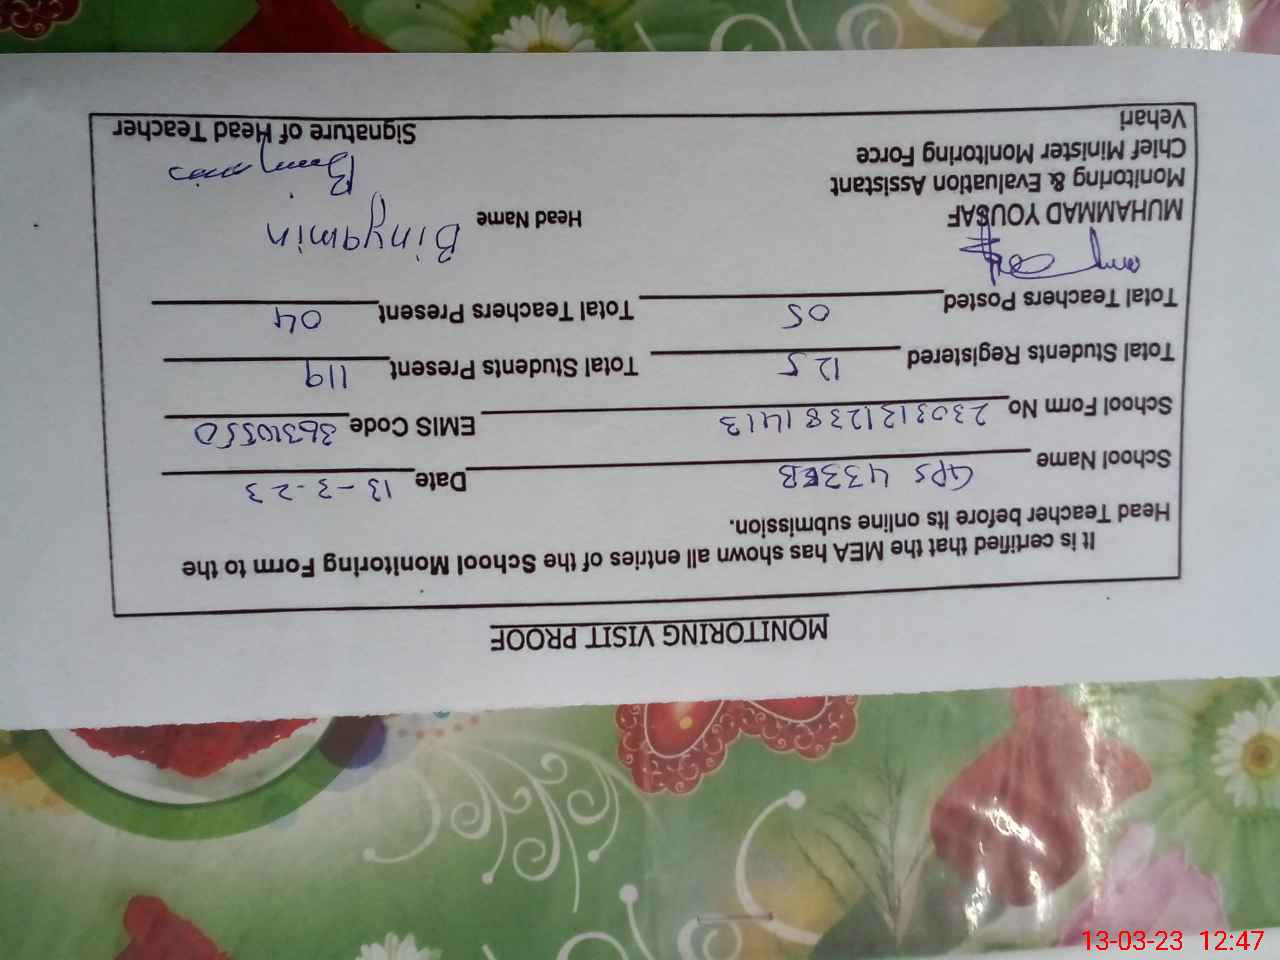 MONITORING VISIT PROOF
It is certified that the MEA has shown all entries of the School Monitoring Form to the
Head Teacher before its online submission.
School Name GPS 433EB Date 13-3-23
School Form No 2303131238141413 EMIS Code 36310550
Total Students Registered 125 Total Students Present 119
Total Teachers Posted 05 Total Teachers Present 04
MUHAMMAD YOUSAF Head Name Binyamin
Monitoring & Evaluation Assistant
Chief Minister Monitoring Force
Vehari
Signature of Head Teacher
13-03-23 12:47